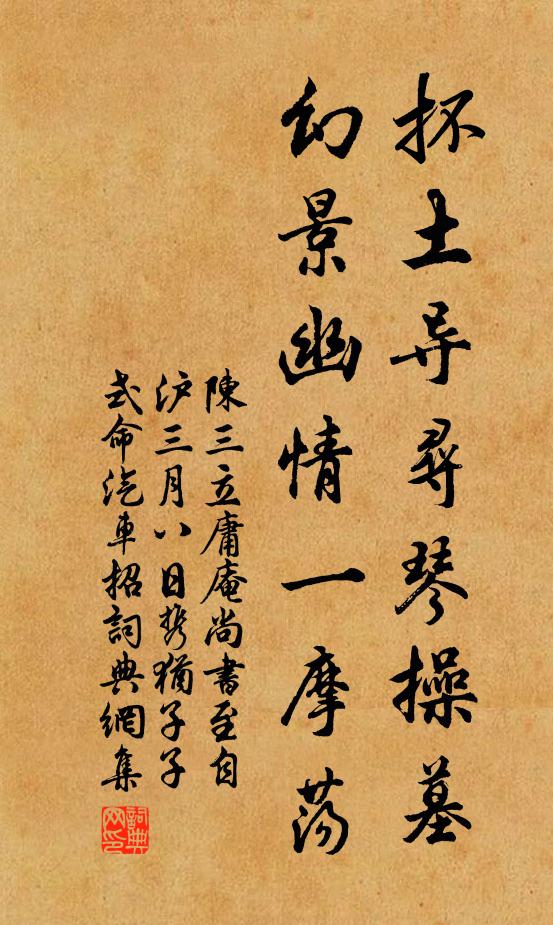 抔土导尋琴操墓
幻景幽情一摩荡
陳三立庸庵尚書至自
沪三月八日携猶子子
式命汽車招詞典網集
詞典网印